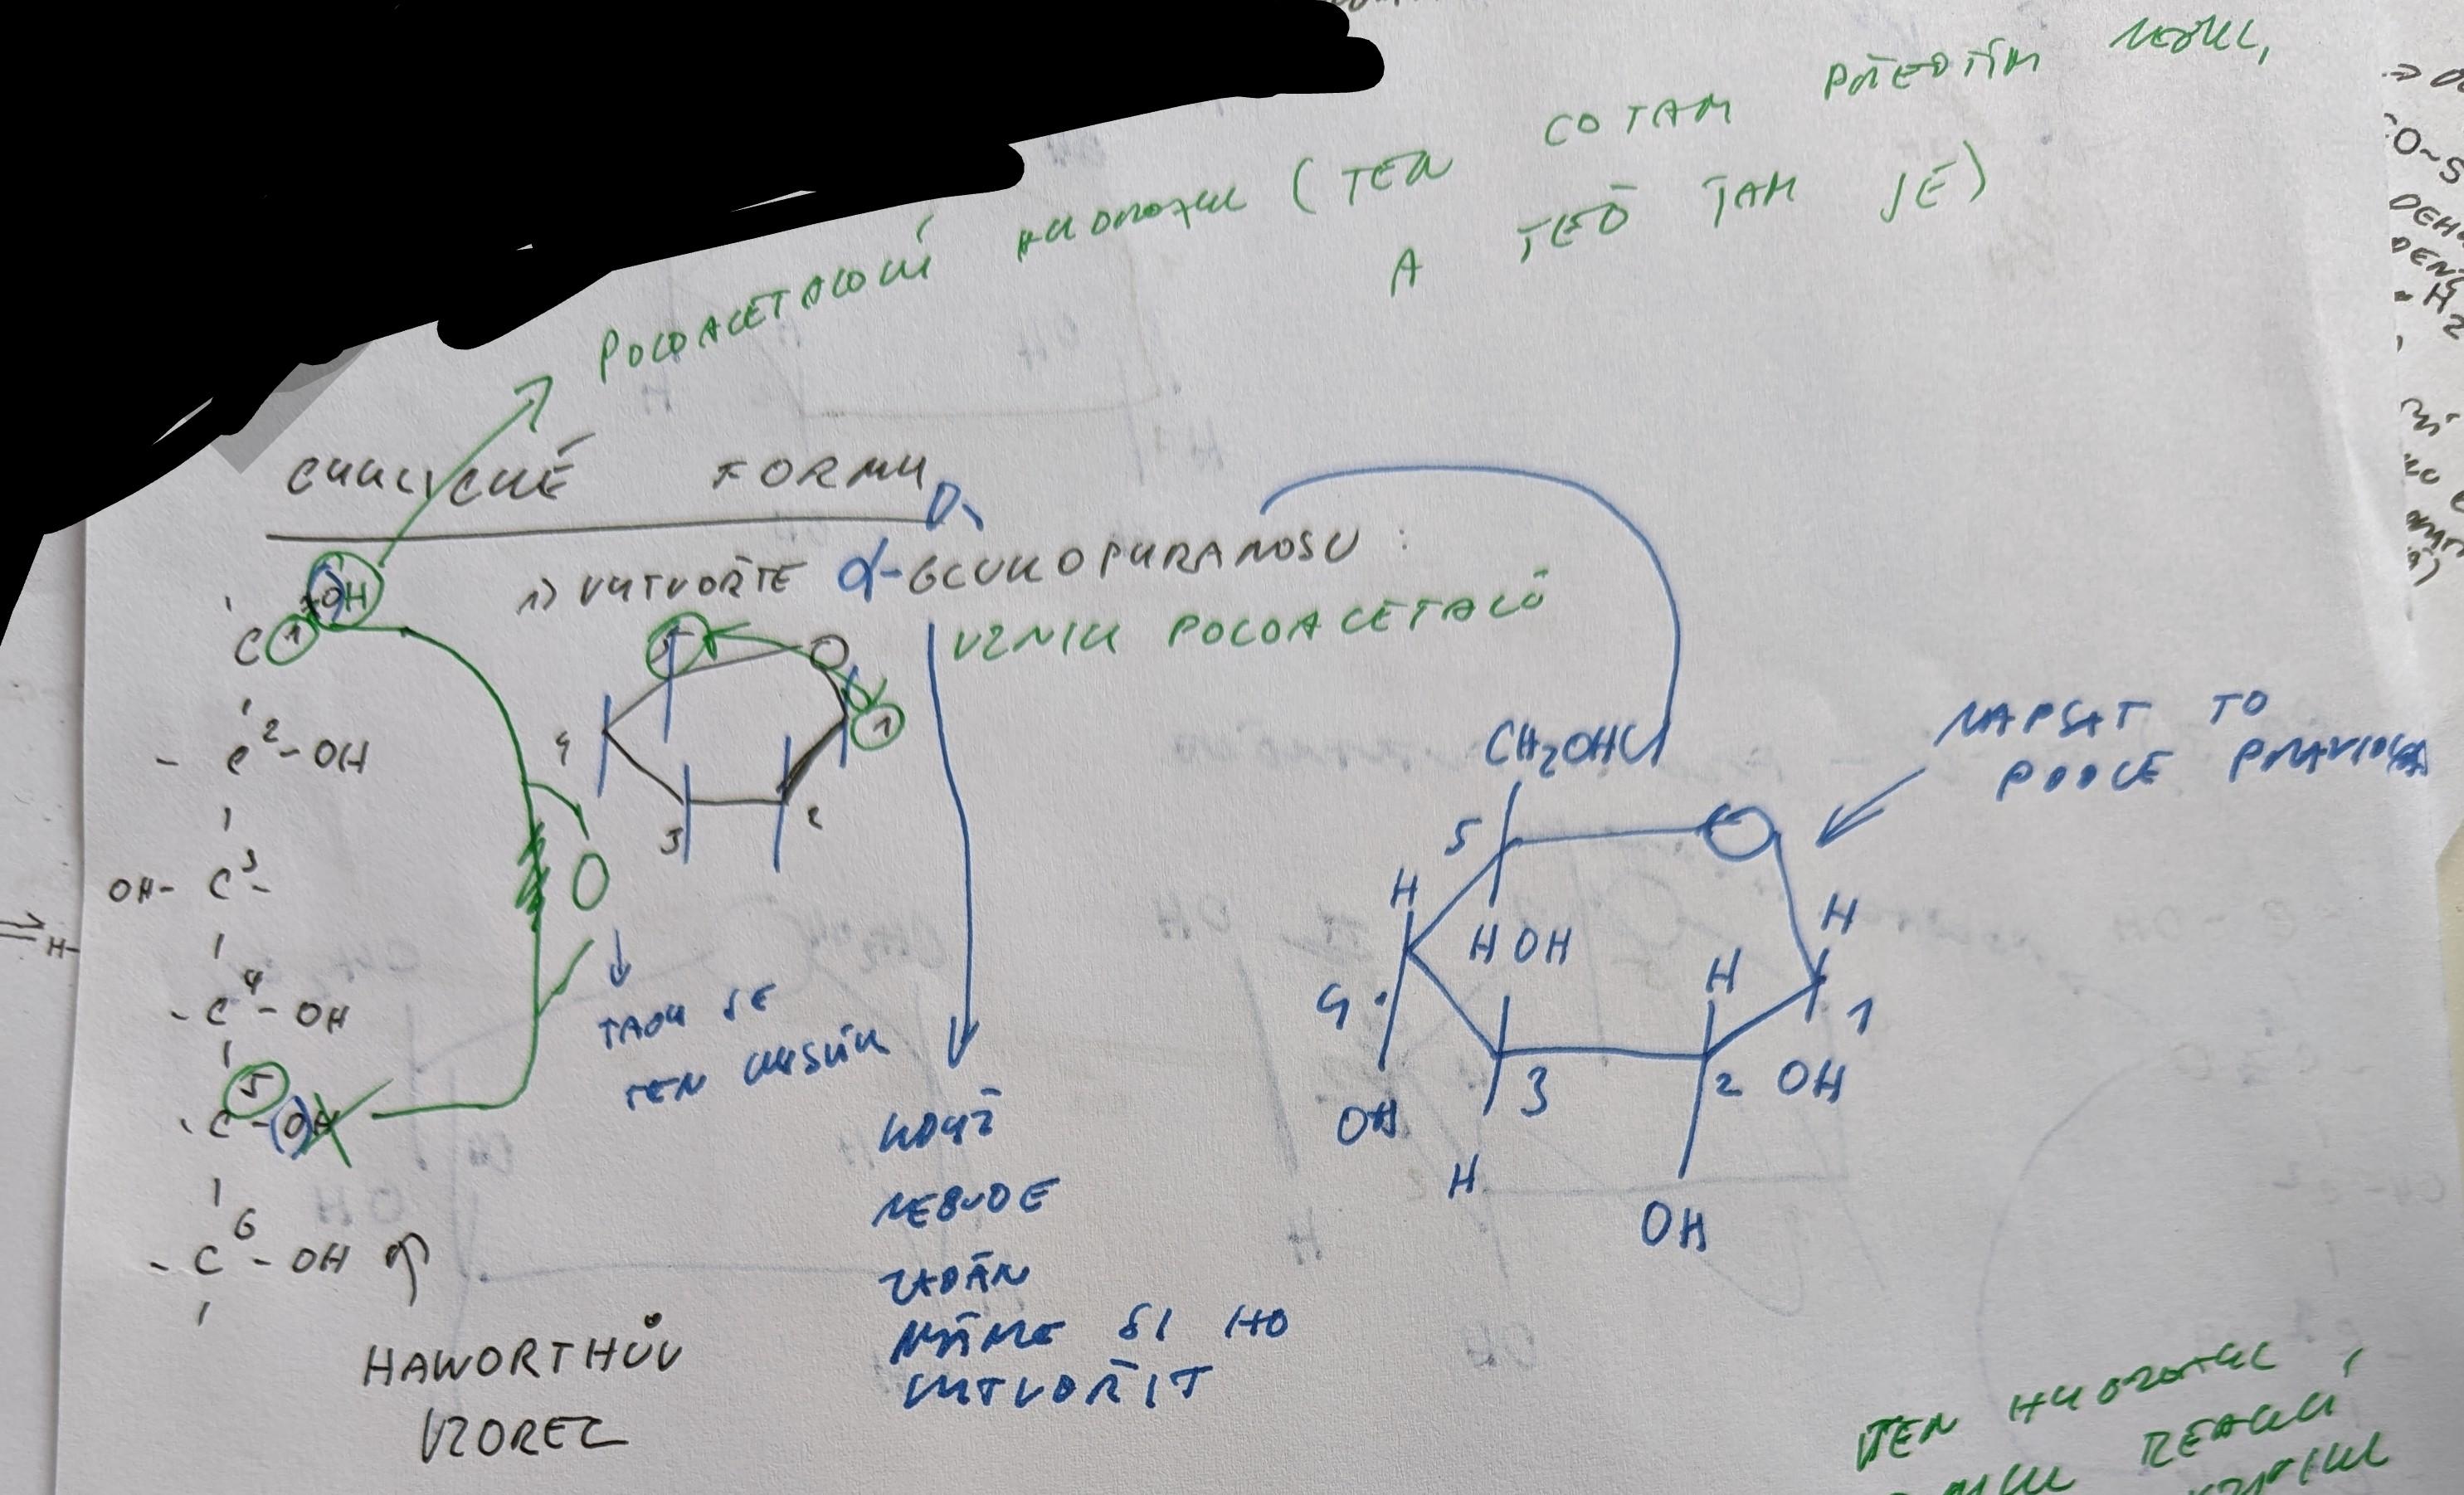 POLOACETALOVÝ HYDROXYL (TEN CO TAM PŘEDTÍM NEBYL,
A TEĎ TAM JE)
CYKLICKÉ FORMY
D-
1) VYTVOŘTE α-GLUKOPYRANOSU:
VZNIK POLOACETALŮ
OH
C 1
- C 2 - OH
OH- C 3 -
- C 4 - OH
C 5 - OH
- C 6 - OH
H-
O
TADY JE
TEN KYSLÍK
5 O
4 1
3 2
KDYŽ
NEBUDE
ZADÁN
MŮŽEME SI HO
VYTVOŘIT
HAWORTHŮV
VZOREC
NAPSAT TO
PODLE PRAVIDLA
CH₂OH
5 O
H H
H OH H
4 1
3 2 OH
OH
H
OH
TEN HYDROXYL
REAKCÍ